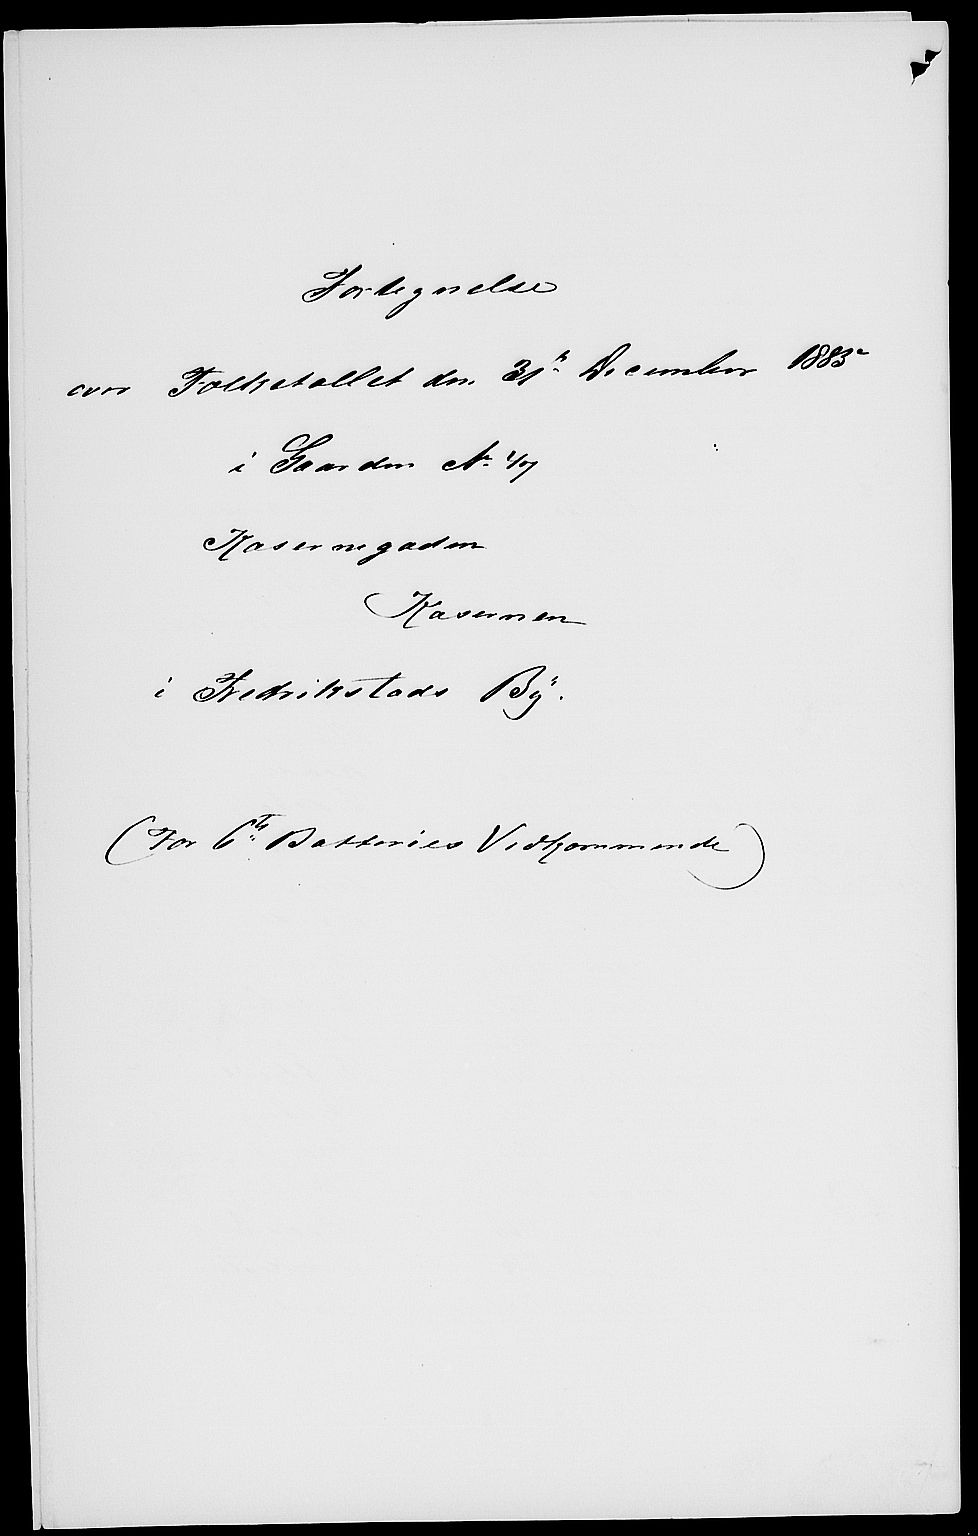 Fortegnelse
over Folketallet den 31te December 1885
i Gaarden No
Kasernegaden
Kasernen
i Fredrikstads By.
(For 6te Batteries Vedkommende)